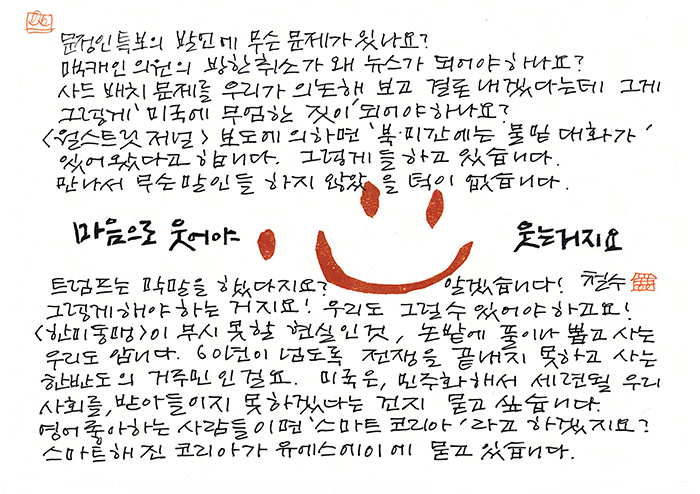 문정인 특보의 발언에 무슨 문제가 있나요?
매캐인 의원의 방한취소가 왜 뉴스가 되어야 하나요?
사드 배치 문제를 우리가 의논해 보고 결론 내겠다는데 그게
그렇게 '미국에 무엄한 짓이' 되어야하나요?
<월스트릿 저널> 보도에 의하면 '북·미간에는 물밑 대화가'
있어왔다고 합니다. 그렇게들 하고 있습니다.
만나서 무슨말인들 하지 않았을 턱이 없습니다.
마음으로 웃어야 웃는거지요
트럼프는 막말을 했다지요? 알겠습니다! 철수
그렇게 해야 하는 거지요! 우리도 그럴수 있어야 하고요!
<한미동맹>이 부시 못할 현실인 것, 논밭에 풀이나 뽑고 사는
우리도 압니다. 60년이 넘도록 전쟁을 끝내지 못하고 사는
한반도의 거주민인걸요. 미국은, 민주화해서 세련될 우리
사회를, 받아들이지 못하겠다는 건지 묻고 싶습니다.
영어좋아하는 사람들이면 '스마트 코리아' 라고 하겠지요?
스마트해진 코리아가 유에스에이에 묻고 있습니다.